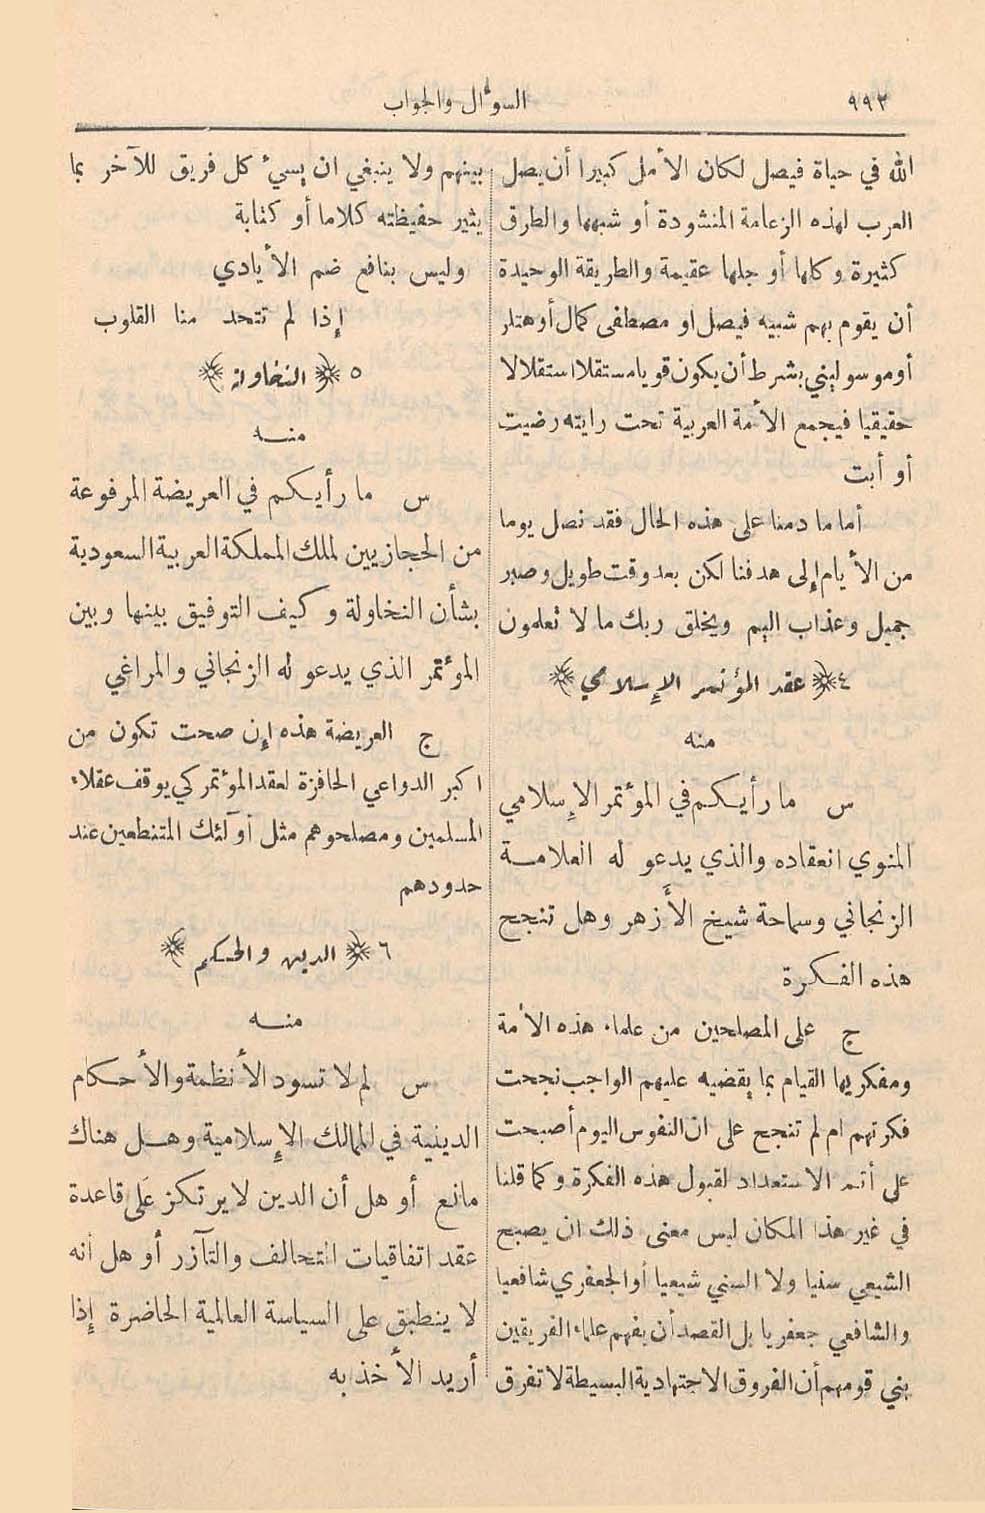 ٩٩٢
السوءال والجواب
الله في حياة فيصل لكان الأمل كبيرا أن يصل
العرب لهذه الزعامة المنشودة أو شبهها والطرق
كثيرة وكلها أو جلها عقيمة والطريقة الوحيدة
أن يقوم بهم شبيه فيصل او مصطفى كمال أو هتلر
أو موسوليني بشرط أن يكون قويا مستقلا استقلالا
حقيقيا فيجمع الأمة العربية تحت رايته رضيت
أو أبت
أما ما دمنا على هذه الحال فقد نصل يوما
من الأيام إلى هدفنا لكن بعد وقت طويل وصبر
جميل وعذاب اليم ويخلق ربك ما لا تعلمون
٤ ﴿عقد المؤتمر الإسلامي﴾
منه
س ما رأيكم في الموءتمر الإسلامي
المنوي انعقاده والذي يدعو له العلامة
الزنجاني وسماحة شيخ الأزهر وهل تنجح
هذه الفكرة
ج على المصلحين من علماء هذه الأمة
ومفكريها القيام بما يقضيه عليهم الواجب نجحت
فكرتهم ام لم تنجح على ان النفوس اليوم أصبحت
على أتم الاستعداد لقبول هذه الفكرة وكما قلنا
في غير هذا المكان ليس معنى ذلك ان يصبح
الشيعي سنيا ولا السني شيعيا أو الجعفري شافعيا
والشافعي جعفريا بل القصد أن يفهم علماء الفريقين
بني قومهم أن الفروق الاجتهادية البسيطة لا تفرق
بينهم ولا ينبغي ان يسيء كل فريق للآخر بما
يثير حفيظته كلاما أو كتابة
وليس بنافع ضم الأيادي
إذا لم تتحد منا القلوب
٥ ﴿النخاولة﴾
منه
س ما رأيكم في العريضة المرفوعة
من الحجازيين لملك المملكة العربية السعودية
بشأن النخاولة وكيف التوفيق بينها وبين
الموءتمر الذي يدعو له الزنجاني والمراغي
ج العريضة هذه إن صحت تكون من
اكبر الدواعي الحافزة لعقد الموءتمر كي يوقف عقلاء
المسلمين ومصلحوهم مثل أولئك المتنطعين عند
حدودهم
٦ ﴿الدين والحكم﴾
منه
س لم لا تسود الأنظمة والأحكام
الدينية في الممالك الإسلامية وهل هناك
مانع أو هل أن الدين لا يرتكز على قاعدة
عقد اتفاقيات التحالف والتآزر أو هل انه
لا ينطبق على السياسة العالمية الحاضرة إذا
أريد الأخذ به